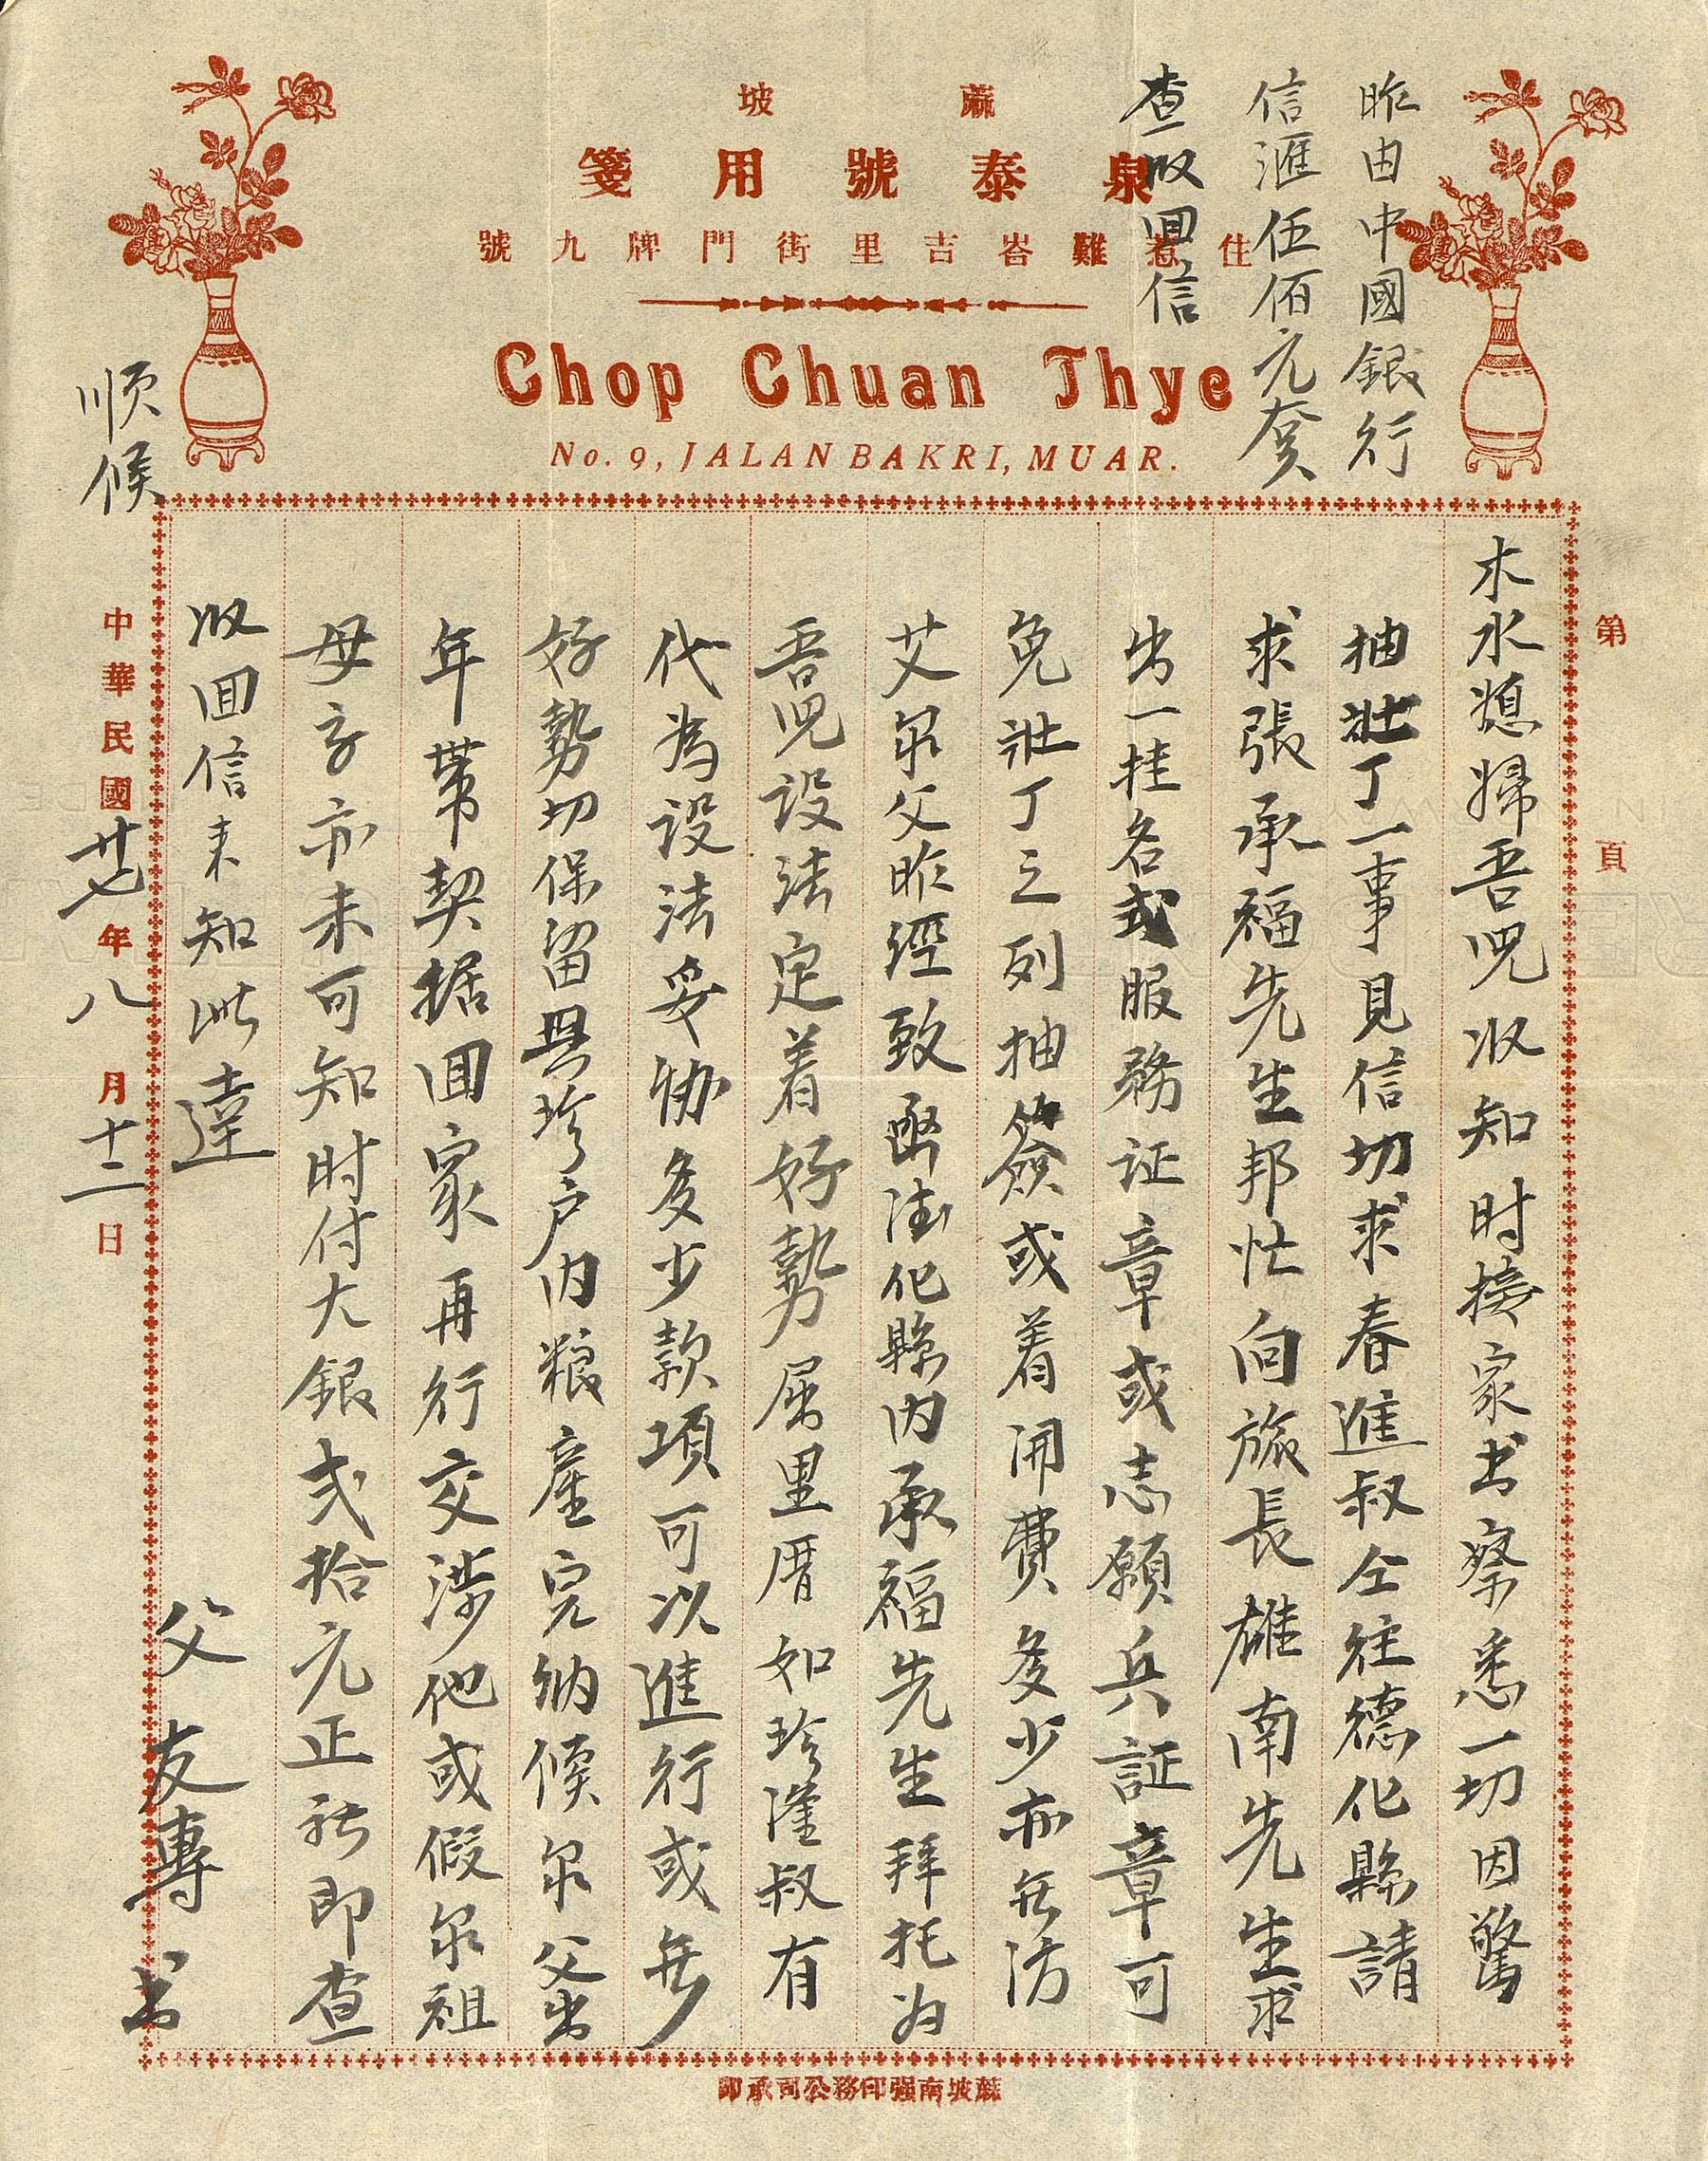 蔴坡
泉泰號用箋
住惹蘭峇吉里街門牌九號
Chop Chuan Thye
No. 9, JALAN BAKRI, MUAR.
昨由中國銀行
信滙伍佰元奀
查收回信
第 頁
木水媳婦吾児收知时接家书察悉一切因驚
抽壯丁一事見信切求春進叔仝往德化縣請
求張承福先生邦忙向旅長雄南先生求
出一挂名或服務证章或志願兵証章可
免壯丁之列抽簽或着開費多少亦無防
艾尔父昨經致函德化縣内承福先生拜托为
吾児设法定着好勢屈里厝如珍漢叔有
代為设法妥协多少款項可以進行或無
好勢切保留与珍户内粮産完纳候尔父出
年帶契据回家再行交涉他或假尔祖
母亦未可知时付大銀弍拾元正託即查
收回信来知此達
順候
父友專书
中華民國廿七年八月十二日
蔴坡南强印務公司承印